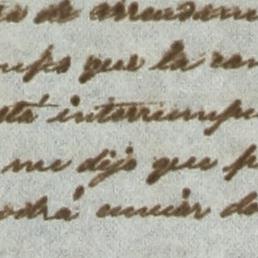 de arrendam
que la ca
está interrumpi
me dijo que p
podrá enviar do